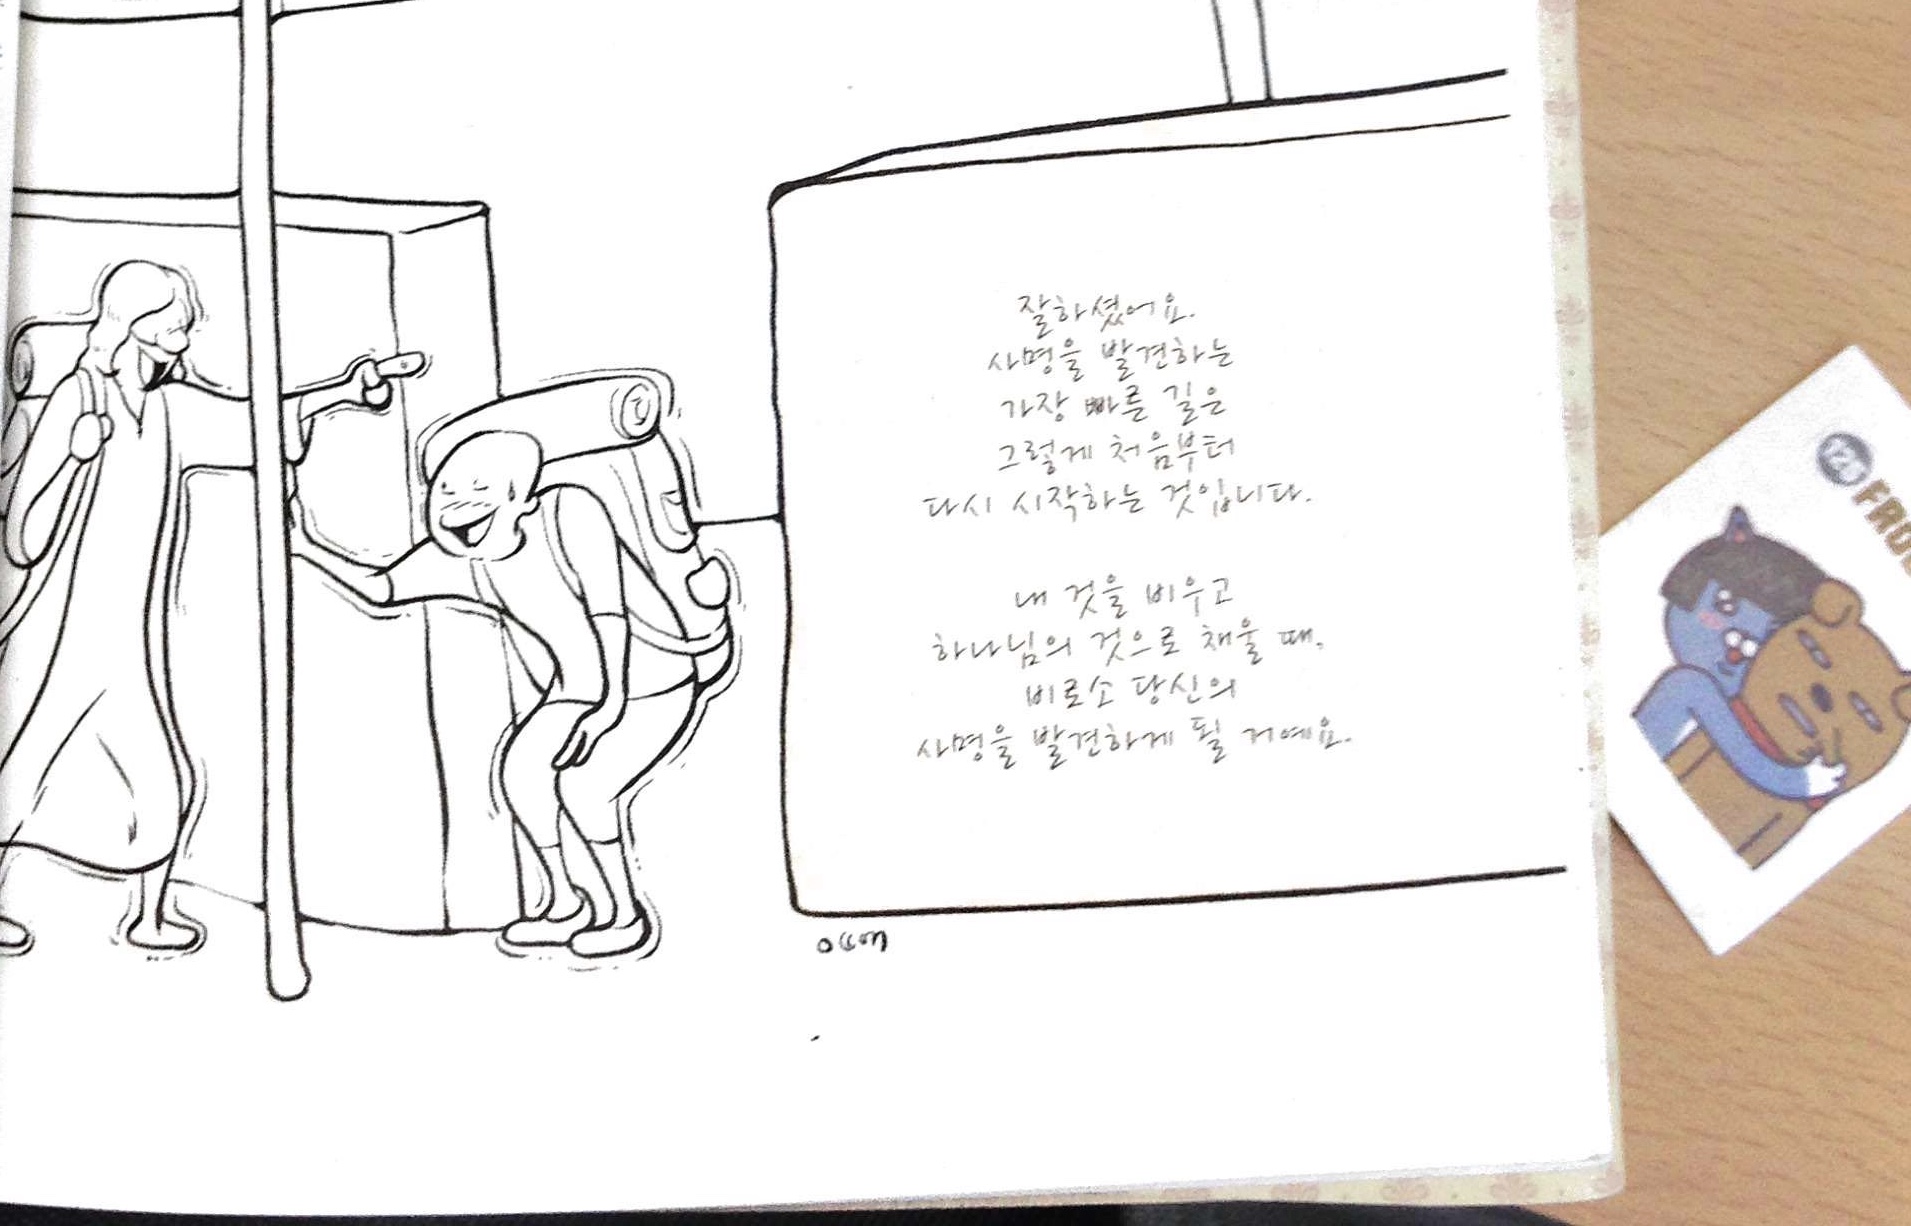 잘하셨어요.
사명을 발견하는
가장 빠른 길은
그렇게 처음부터
다시 시작하는 것입니다.
내 것을 비우고
하나님의 것으로 채울 때,
비로소 당신의
사명을 발견하게 될 거예요.